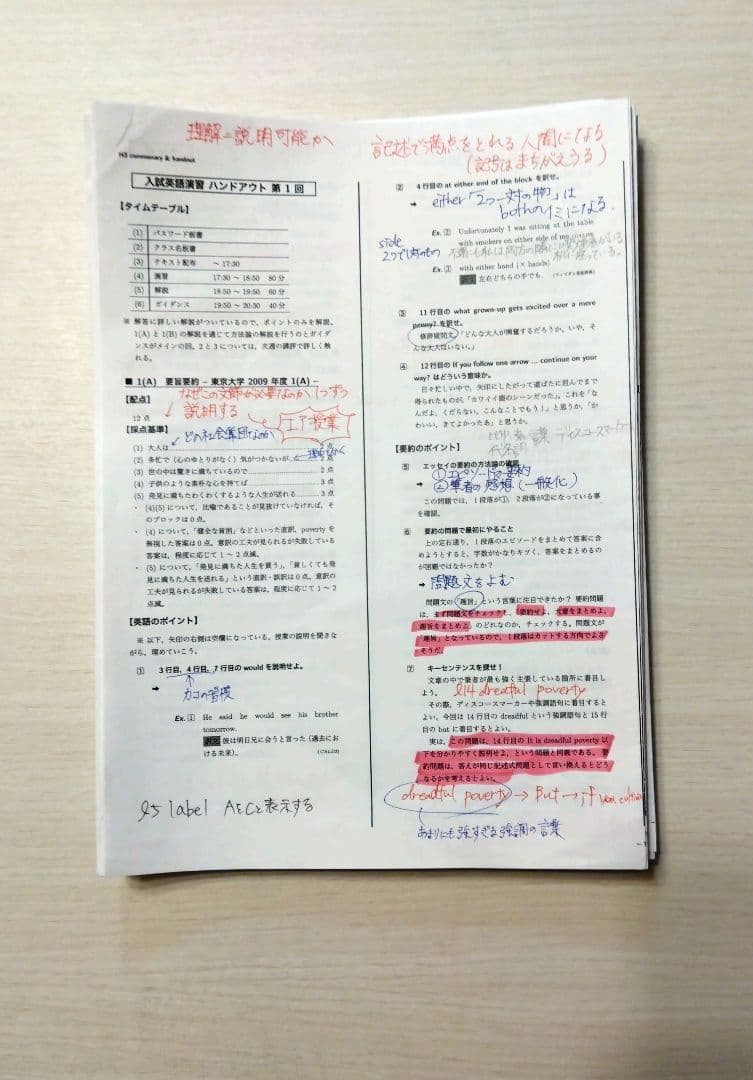 理解=説明可能か
記述で満点をとれる人間になる
(記号はまちがえうる)
H3 commenary & handout
入試英語演習 ハンドアウト 第1回
【タイムテーブル】
(1) パスワード板書
(2) クラス名板書
(3) テキスト配布 ～17:30
(4) 演習 17:30～18:50 80分
(5) 解説 18:50～19:50 60分
(6) ガイダンス 19:50～20:30 40分
※ 解答に詳しい解説がついているので、ポイントのみを解説、
1(A)と1(B)の解説を通じて方法論の解説を行うのとガイダ
ンスがメインの回。2と3については、次週の講評で詳しく触
れる。
■ 1(A) 要旨要約 – 東京大学 2009年度 1(A) –
なぜこの文節が必要なのか1つずつ
説明する
エア授業
【配点】
12点
【採点基準】
どの社会集団なのか
(1) 大人は 2点
(2) 多忙で(心のゆとりがなく)気がつかないが 2点
(3) 世の中は驚きに満ちているので 2点
(4) 子供のような素朴な心を持てば 3点
(5) 発見に満ちたわくわくするような人生が送れる 3点
・(4)(5)について、比喩であることが見抜けていなければ、そ
のブロックは0点。
・(4)について、「健全な貧困」などといった直訳、povertyを
無視した答案は0点。意訳の工夫が見られるが失敗している
答案は、程度に応じて1～2点減。
・(5)について、「発見に満ちた人生を買う」、「貧しくても発
見に満ちた人生を送れる」という直訳・誤訳は0点。意訳の
工夫が見られるが失敗している答案は、程度に応じて1～2
点減。
【英語のポイント】
※ 以下、矢印の右側は空欄になっている。授業の説明を聞きな
がら、埋めていこう。
1 3行目、4行目、7行目のwouldを説明せよ。
➡ カコの習慣
Ex.① He said he would see his brother
tomorrow.
訳文 彼は明日兄に会うと言った(過去にお
ける未来)。
l5 label AをCと表示する
② 4行目のat either end of the blockを訳せ。
➡ either「2つ一対の物」は
bothのイミになる.
side
2つで1対のもの
Ex.② Unfortunately I was sitting at the table
with smokers on either side of me.
Ex.③ with either hand (× hands)
訳文 左右どちらの手でも.
③ 11行目のwhat grown-up gets excited over a mere
penny?を訳せ。
修辞疑問文。「どんな大人が興奮するだろうか。いや、そ
んな大人はいない。」
④ 12行目のIf you follow one arrow ... continue on your
way?はどういう意味か。
日々忙しい中で、矢印にしたがって道ばたに屈んでまで
得られたものが、「カワイイ鼠のシーンだった」。これを「な
んだよ、くだらない、こんなことでもう!」と思うか、「か
わいい、きてよかったあ」と思うか。
代名詞
ディスコースマーカー
【要約のポイント】
⑤ エッセイの要約の方法論の確認
➡ ①エピソードの要約
②筆者の感想(一般化)
この問題では、1段落が①、2段落が②になっている事
を確認。
⑥ 要約の問題で最初にやること
上の定石通り、1段落のエピソードをまとめて答案に含
めようとすると、字数がかなりキツく、答案をまとめるの
が困難ではなかったか?
➡ 問題文をよむ
問題文の「趣旨」という言葉に注目できたか? 要約問題
は、まず問題文をチェックし、「要約せよ、文章をまとめよ、
趣旨をまとめよ」のどれなのか、チェックする。問題文が
「趣旨」となっているので、1段落はカットする方向でよさ
そうだ。
⑦ キーセンテンスを探せ!
文章の中で筆者が最も強く主張している箇所に着目し
よう。 l14 dreaful poverty
その際、ディスコースマーカーや強調語句に着目すると
よい。今回は14行目のdreadfulという強調語句と15行
目のbutに着目するとよい。
実は、この問題は、14行目のIt is dreadful poverty以
下を分かりやすく説明せよ、という問題と同義である。要
約問題は、答えが同じ記述式問題として言い換えるとどう
なるかを考えるとよい。
dreadful poverty→But→if you cultiv
あまりにも強すぎる強調の言葉